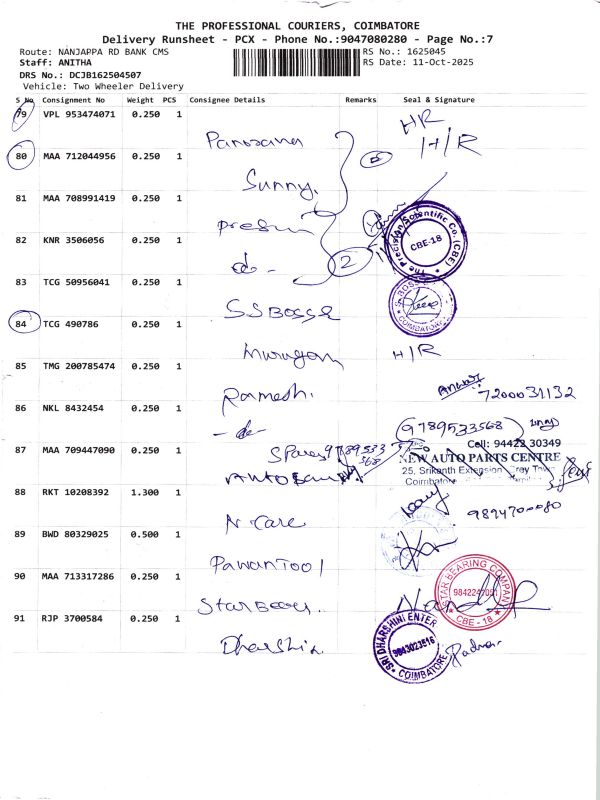 THE PROFESSIONAL COURIERS, COIMBATORE
Delivery Runsheet - PCX - Phone No.:9047080280 - Page No.:7
Route: NANJAPPA RD BANK CMS RS No.: 1625045
Staff: ANITHA RS Date: 11-Oct-2025
DRS No.: DCJB162504507
Vehicle: Two Wheeler Delivery
S No Consignment No Weight PCS Consignee Details Remarks Seal & Signature
79 VPL 953474071 0.250 1 HR
80 MAA 712044956 0.250 1 H/R
Sunny.
81 MAA 708991419 0.250 1
82 KNR 3506056 0.250 1 2 The Precision Scientific Co. (CBE) CBE-18
-do-
83 TCG 50956041 0.250 1
SSBOSSE
84 TCG 490786 0.250 1 COIMBATORE
Murugan H/R
85 TMG 200785474 0.250 1
Ramesh. 7200031132
86 NKL 8432454 0.250 1
-do- 9789533568
87 MAA 709447090 0.250 1 Spares 9789533568 Cell: 94422 30349
NEW AUTO PARTS CENTRE
25, Srikanth Extension, Grey Town
Coimbatore
88 RKT 10208392 1.300 1
N Care 9894700080
89 BWD 80329025 0.500 1
Pawan Tool
90 MAA 713317286 0.250 1 STAR BEARING COMPANY CBE - 18
Star Bear.
91 RJP 3700584 0.250 1 SRI DHARSHINI ENTER 9843023516 COIMBATORE
Dharshin Padma